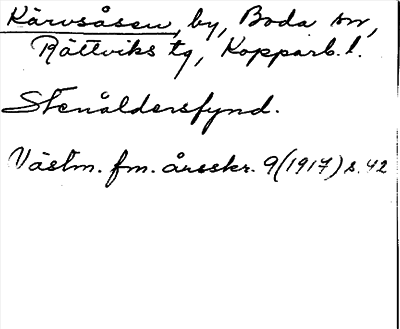 Kärvsåsen, by, Boda sn,
Rättviks tg, Kopparb. l.
Stenåldersfynd.
Västm. fm. årsskr. 9(1917) s. 42